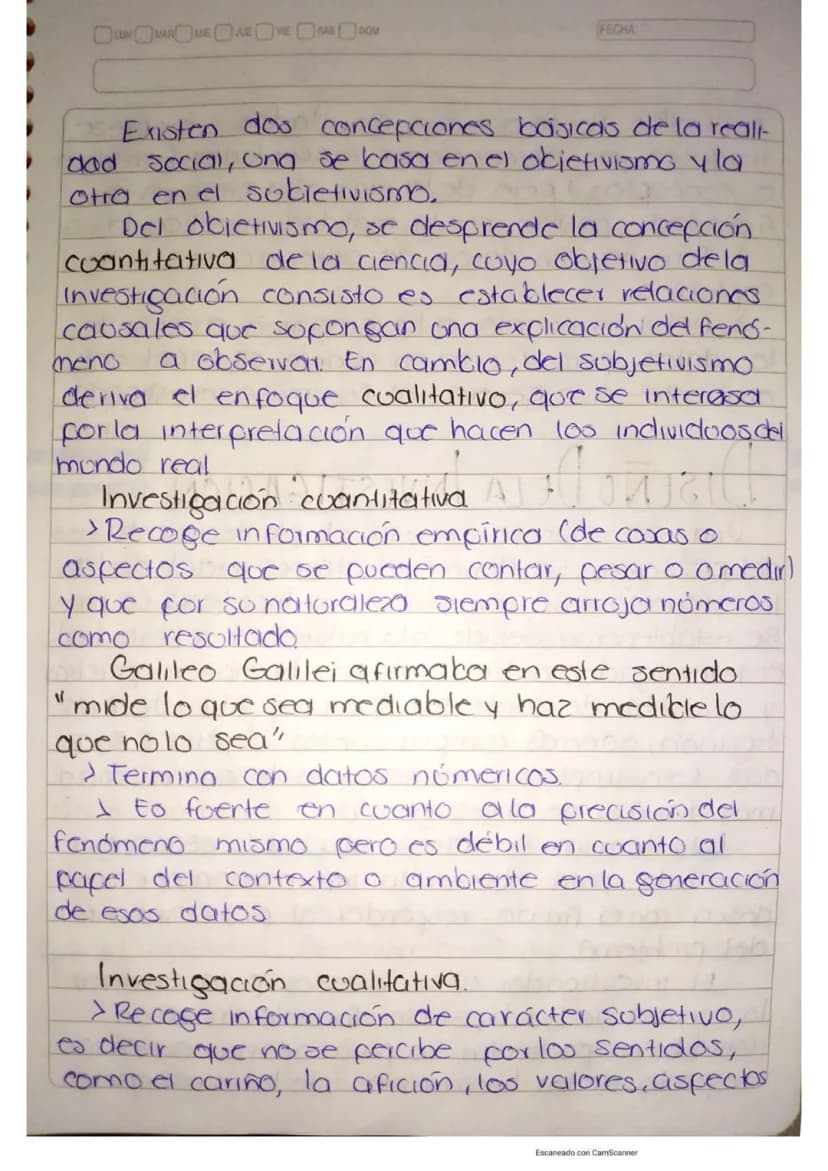 LUN MAR MIE JUE VIE SAB DOM FECHA
Existen dos concepciones básicas de la reali-
dad social, una se basa en el objetivismo y la
otra en el subjetivismo.
Del objetivismo, se desprende la concepción
cuantitativa de la ciencia, cuyo objetivo de la
investigación consisto es establecer relaciones
causales que supongan una explicación del fenó-
meno a observar. En cambio, del subjetivismo
deriva el enfoque cualitativo, que se interesa
por la interpretación que hacen los individuos del
mundo real
Investigación cuantitativa
> Recoge información empírica (de cosas o
aspectos que se pueden contar, pesar o o medir)
y que por su naturaleza siempre arroja números
como resultado.
Galileo Galilei afirmaba en este sentido
"mide lo que sea mediable y haz medible lo
que no lo sea"
> Termina con datos númericos.
> Es fuerte en cuanto a la precisión del
fenómeno mismo pero es débil en cuanto al
papel del contexto o ambiente en la generación
de esos datos
Investigación cualitativa.
> Recoge información de carácter subjetivo,
es decir que no se percibe por los sentidos,
como el cariño, la afición, los valores, aspectos
Escaneado con CamScanner